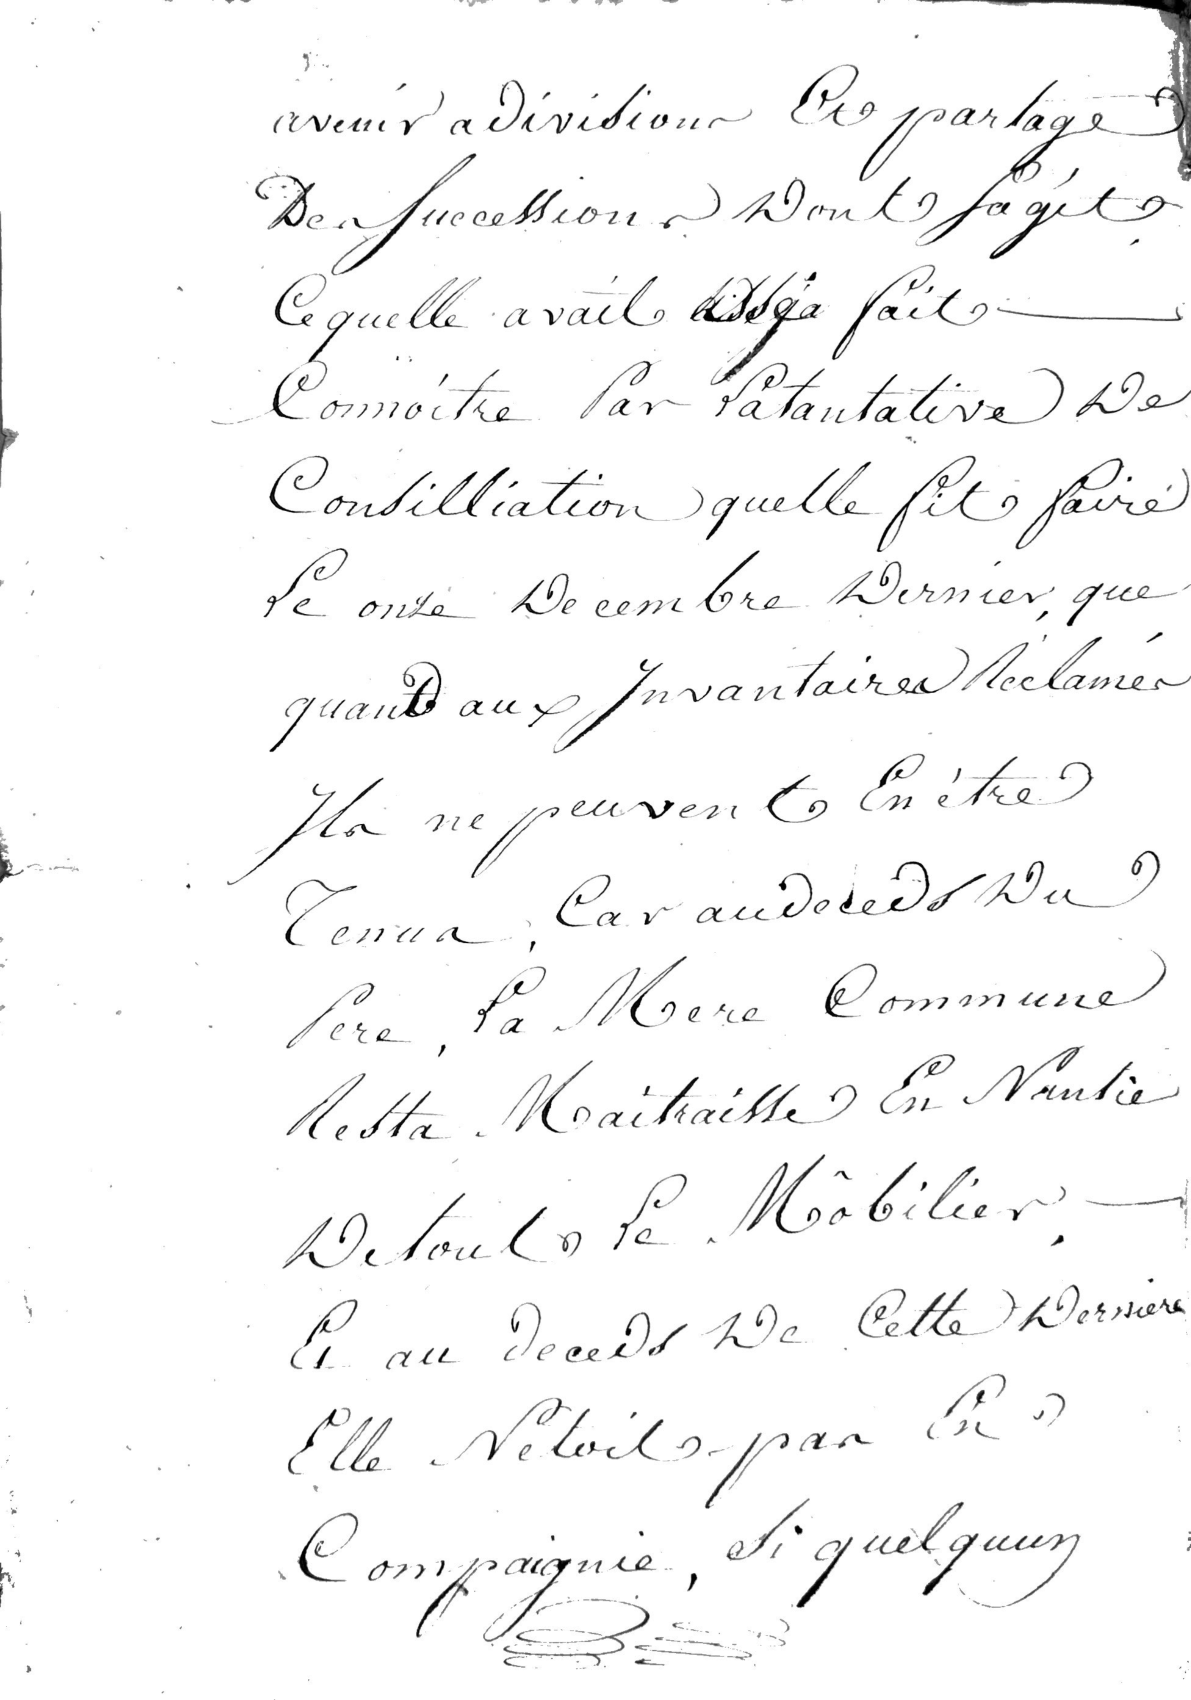 avenir a division Et partage
Des Successions Dont Sagit,
Ce quelle avait desja fait
Connoitre Par La tantative De
Consilliation quelle fit faire
Le onze Decembre Dernier, que
quand aux Invantaires Réclamés
Ils ne peuvent En être
Tenus, Car au deceds Du
Pere, La Mere Commune
Resta Maitraisse En Nantie
De tout Le Môbilier,
Et au deceds De Cette Derniere
Elle Netoit pas En
Compaignie, Si quelquun